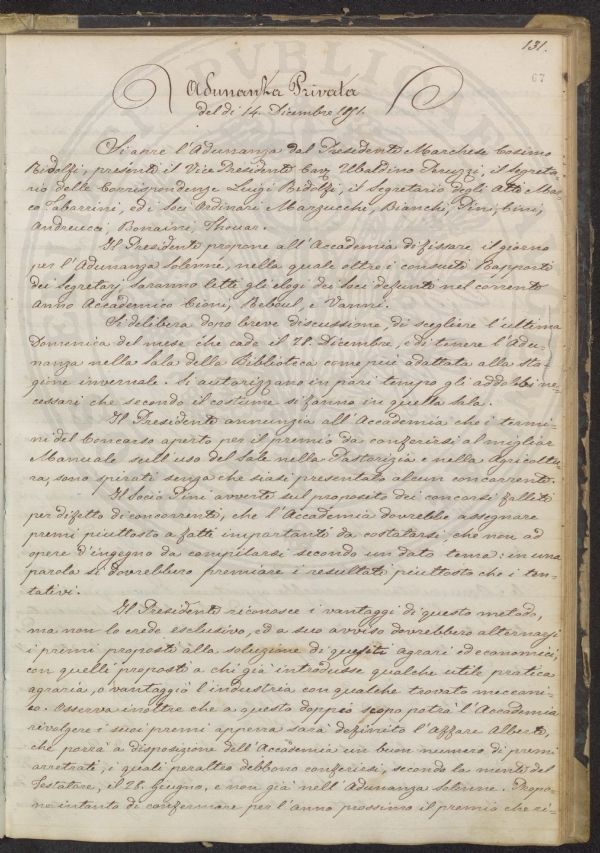 131.
67
Adunanza Privata
del di 14. Dicembre 1851.
Si apre l'Adunanza dal Presidente Marchese Cosimo
Ridolfi, presenti il Vice Presidente Cav. Ubaldino Peruzzi, il Segreta-
rio delle Corrispondenze Luigi Ridolfi, il Segretario degli Atti Mar-
co Tabarrini, ed i Soci Ordinari Marzucchi, Bianchi, Pini, Cini,
Andreucci, Bonaini, Thouar.
Il Presidente propone all'Accademia di fissare il giorno
per l'Adunanza Solenne, nella quale oltre i consueti Rapporti
dei Segretarj, saranno letti gli elogi dei Soci defunti nel corrente
Anno Accademico Cioni, Reboul, e Vanni.
Si delibera dopo breve discussione, di scegliere l'ultima
Domenica del mese che cade il 28. Dicembre, e di tenere l'Adu-
nanza nella Sala della Biblioteca come più adattata alla sta-
gione invernale. Si autorizzano in pari tempo gli addobbi ne-
cessari che secondo il costume si fanno in quella Sala.
Il Presidente annunzia all'Accademia che i termi-
ni del Concorso aperto per il premio da conferirsi al miglior
Manuale sull'uso del Sale nella Pastorizia e nella Agricoltu-
ra, sono spirati senza che siasi presentato alcun concorrente.
Il Socio Pini avverte sul proposito dei concorsi falliti
per difetto di concorrenti, che l'Accademia dovrebbe assegnare
premi piuttosto a fatti importanti da costatarsi, che non ad
opere d'ingegno da compilarsi secondo un dato tema: in una
parola si dovrebbero premiare i resultati piuttosto che i ten-
tativi.
Il Presidente riconosce i vantaggi di questo metodo,
ma non lo crede esclusivo, ed a suo avviso dovrebbero alternarsi
i premi proposti alla soluzione di quesiti agrari ed economici,
con quelli proposti a chi già introdusse qualche utile pratica
agraria, o vantaggiò l'industria con qualche trovato meccani-
co. Osserva inoltre che a questo doppio scopo potrà l'Accademia
rivolgere i suoi premi appena sarà definito l'Affare Alberti,
che porrà a disposizione dell'Accademia un buon numero di premi
arretrati, i quali peraltro debbono conferirsi, secondo la mente del
Testatore, il 28. Giugno, e non già nell'Adunanza Solenne. Propo-
ne intanto di confermare per l'anno prossimo il premio che ri-